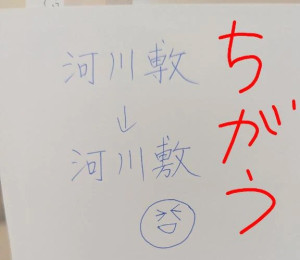 河川敷
↓
河川敷
ちがう